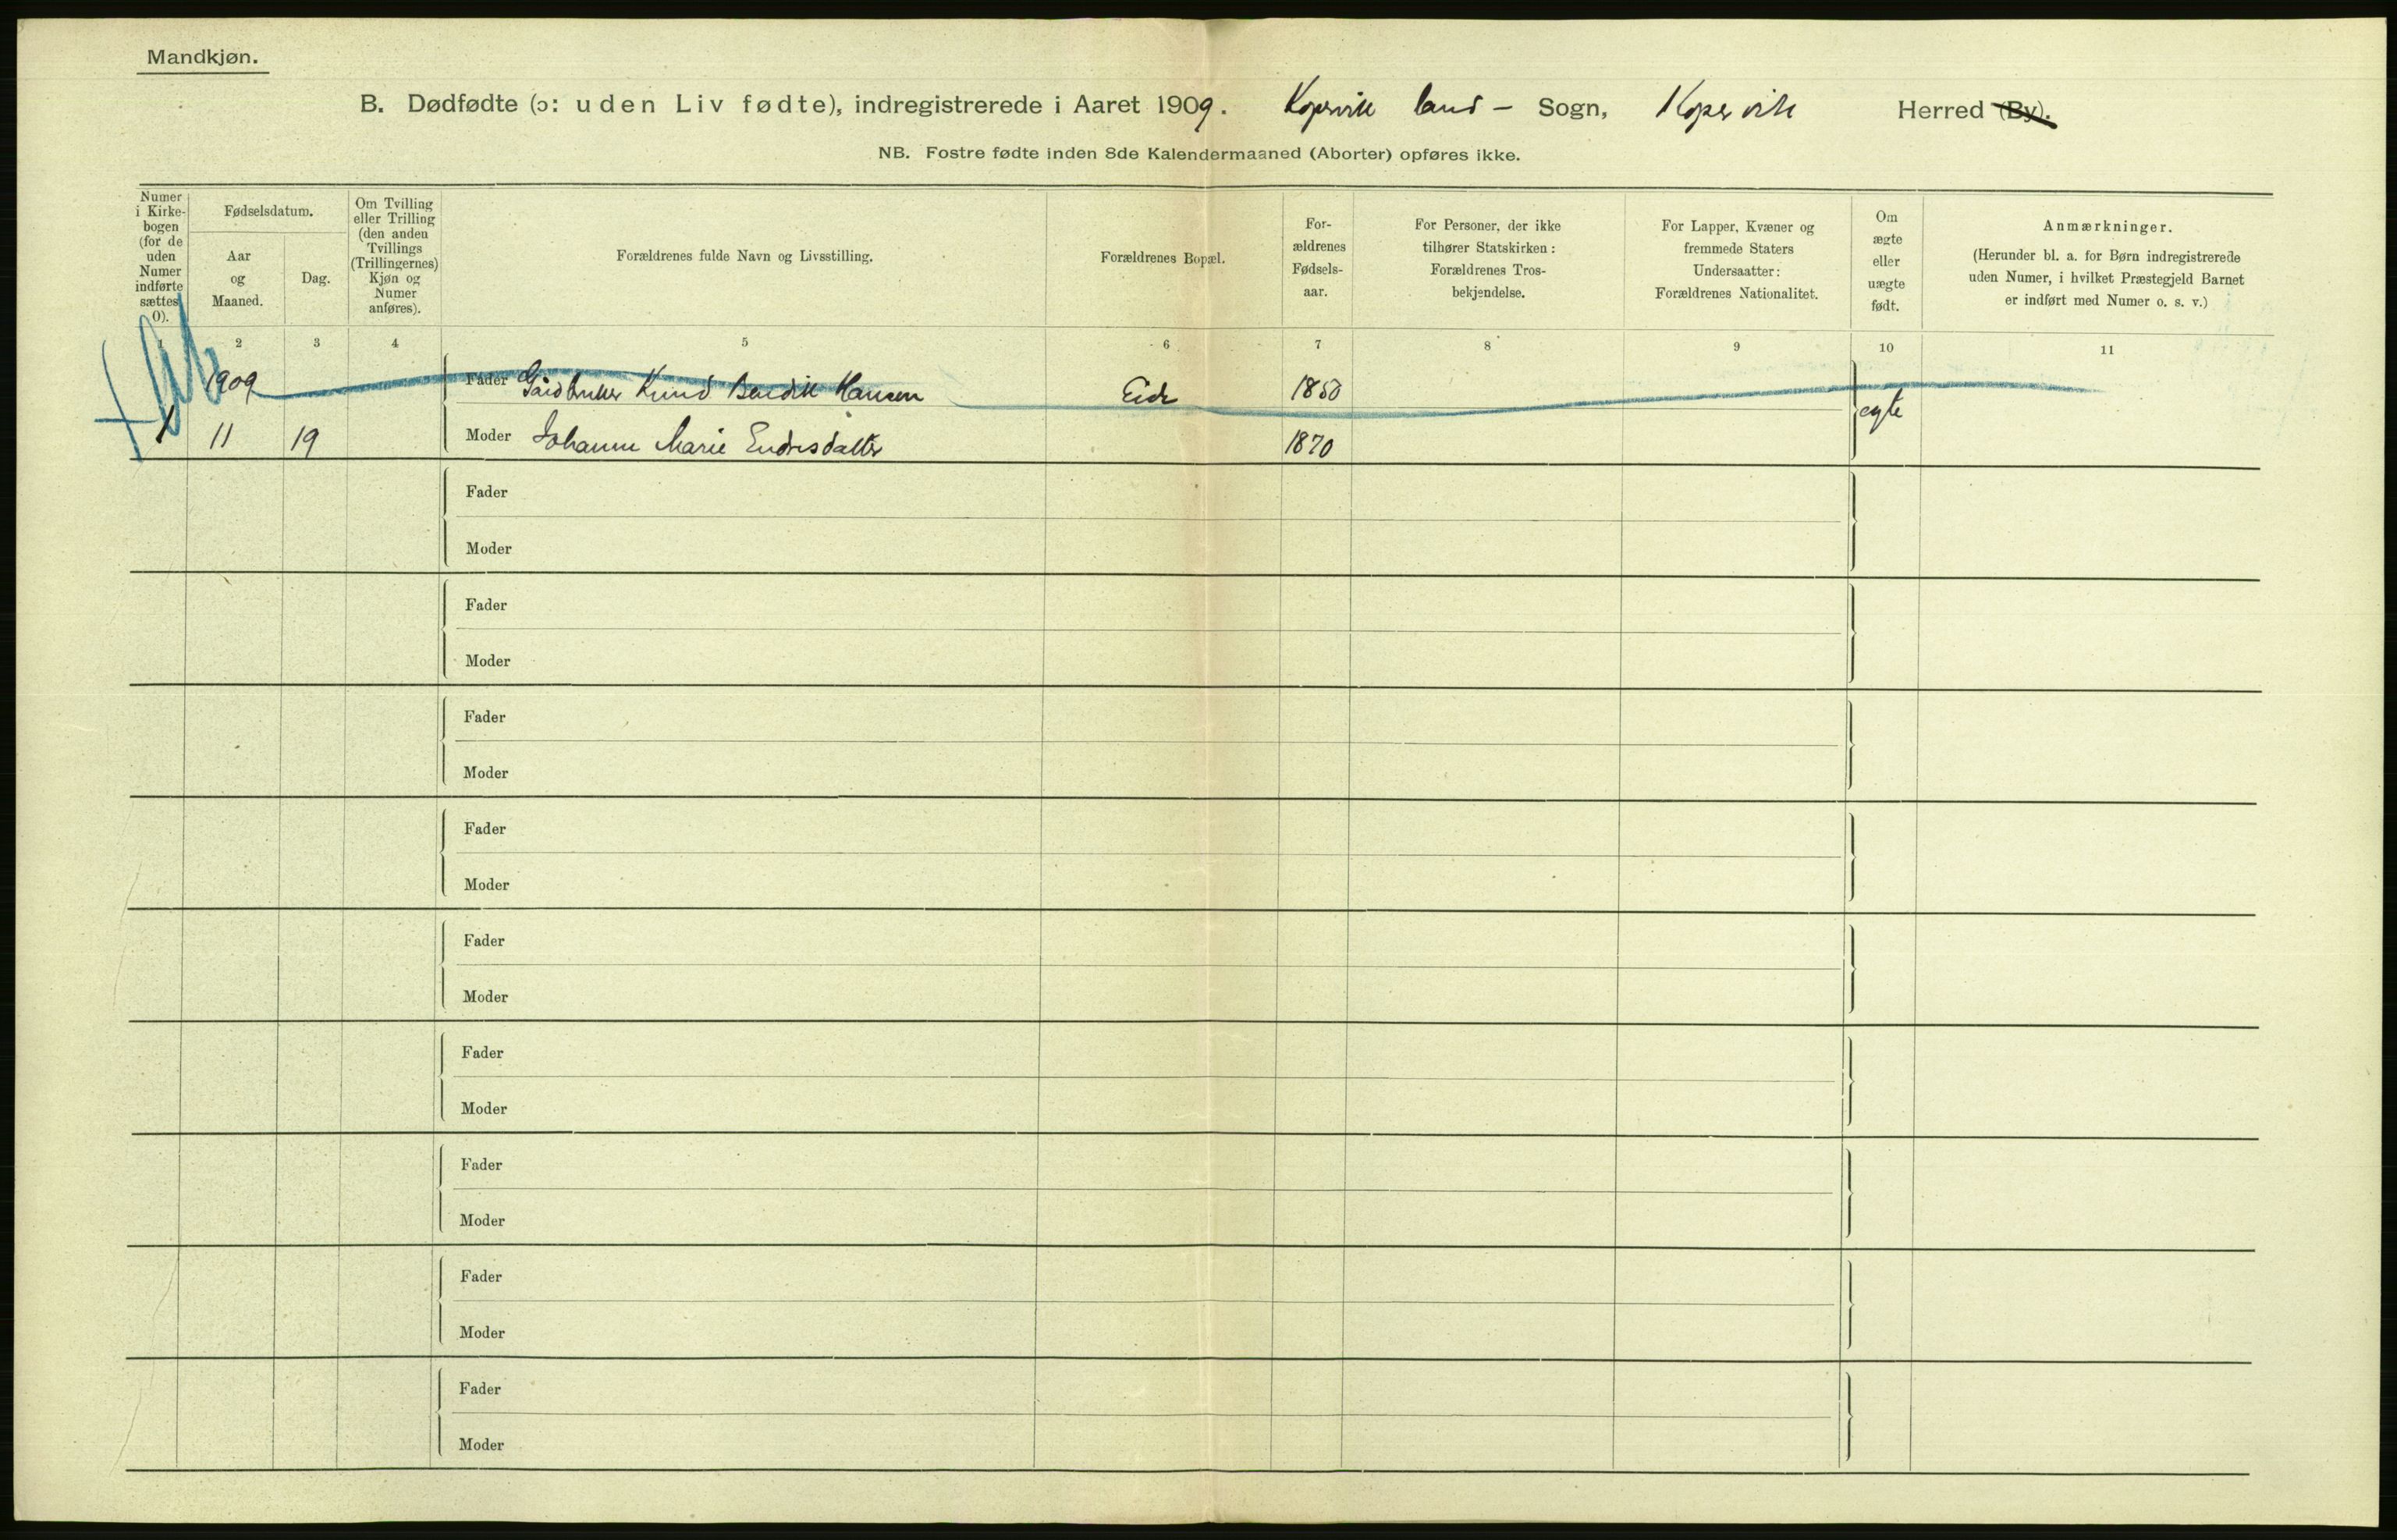 Mandkjøn.
B. Dødfødte (ɔ: uden Liv fødte), indregistrerede i Aaret 1909. Kopervik land- Sogn, Kopervik Herred (By).
NB. Fostre fødte inden 8de Kalendermaaned (Aborter) opføres ikke.
Numer
i Kirke-
bogen
(for de
uden
Numer
indførte
sættes
0).
Fødselsdatum.
Aar
og
Maaned.
Dag.
Om Tvilling
eller Trilling
(den anden
Tvillings
(Trillingernes)
Kjøn og
Numer
anføres).
Forældrenes fulde Navn og Livsstilling.
Forældrenes Bopæl.
For-
ældrenes
Fødsels-
aar.
For Personer, der ikke
tilhører Statskirken:
Forældrenes Tros-
bekjendelse.
For Lapper, Kvæner og
fremmede Staters
Undersaatter:
Forældrenes Nationalitet.
Om
ægte
eller
uægte
født.
Anmærkninger.
(Herunder bl. a. for Børn indregistrerede
uden Numer, i hvilket Præstegjeld Barnet
er indført med Numer o. s. v.)
1 2 3 4 5 6 7 8 9 10 11
1909 Fader Gårdbruker Knud Bendik Hansen Eide 1850
egte
1 11 19 Moder Johanne Marie Endresdatter 1870
Fader
Moder
Fader
Moder
Fader
Moder
Fader
Moder
Fader
Moder
Fader
Moder
Fader
Moder
Fader
Moder
Fader
Moder